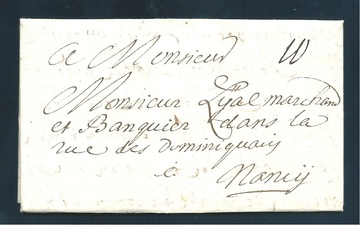 A Monsieur 10
Monsieur Lyal marchand
et Banquier dans la
rue des dominiquains
a Nancÿ